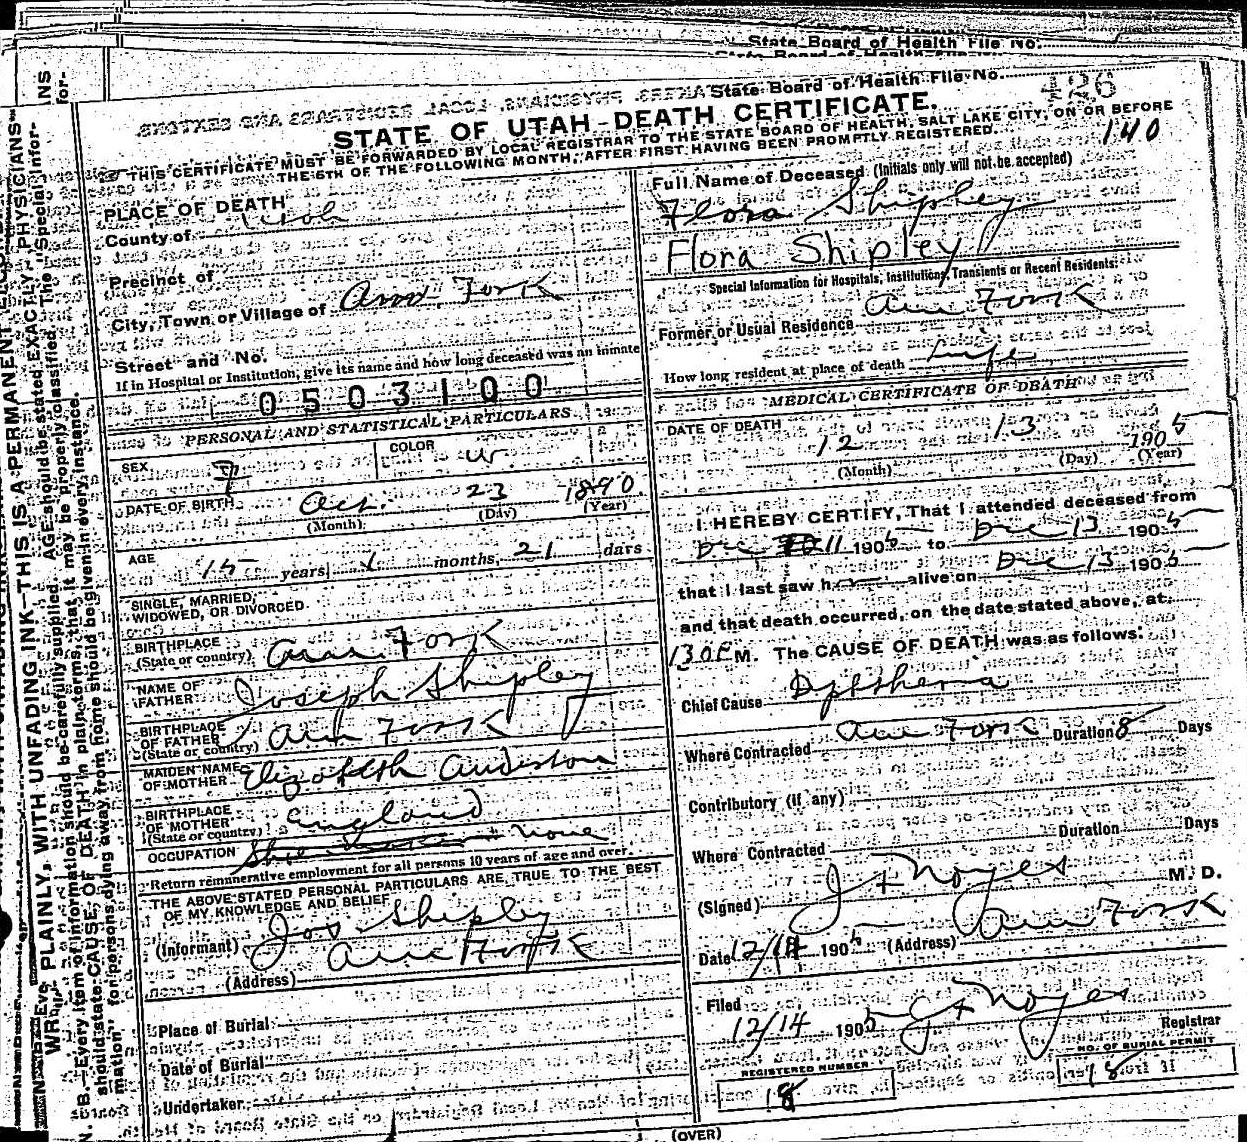 State Board of Health File No.
State Board of Health File No. 426
STATE OF UTAH-DEATH CERTIFICATE.
140
THIS CERTIFICATE MUST BE FORWARDED BY LOCAL REGISTRAR TO THE STATE BOARD OF HEALTH, SALT LAKE CITY, ON OR BEFORE
THE 5TH OF THE FOLLOWING MONTH, AFTER FIRST HAVING BEEN PROMPTLY REGISTERED.
PLACE OF DEATH
County of Utah
Precinct of
City, Town or Village of Am. Fork
Street and No.
If in Hospital or Institution, give its name and how long deceased was an inmate
0503100
PERSONAL AND STATISTICAL PARTICULARS
SEX F
COLOR W
DATE OF BIRTH Oct. 23 1890
(Month) (Day) (Year)
AGE 15 years 1 months, 21 days
SINGLE, MARRIED,
WIDOWED, OR DIVORCED
BIRTHPLACE
(State or country) Am Fork
NAME OF
FATHER Joseph Shipley
BIRTHPLACE
OF FATHER
(State or country) Am Fork
MAIDEN NAME
OF MOTHER Elizabeth
BIRTHPLACE
OF MOTHER
(State or country) England
OCCUPATION none
Return remunerative employment for all persons 10 years of age and over.
THE ABOVE STATED PERSONAL PARTICULARS ARE TRUE TO THE BEST
OF MY KNOWLEDGE AND BELIEF
(Informant) Jos Shipley
Am Fork
(Address)
Place of Burial
Date of Burial
Undertaker
Full Name of Deceased (Initials only will not be accepted)
Flora Shipley
Flora Shipley
Special Information for Hospitals, Institutions, Transients or Recent Residents:
Former or Usual Residence Am Fork
How long resident at place of death Life
MEDICAL CERTIFICATE OF DEATH
DATE OF DEATH
12 13 1905
(Month) (Day) (Year)
I HEREBY CERTIFY, That I attended deceased from
Dec 11 1905 to Dec 13 1905
that I last saw her alive on Dec 13 1905
and that death occurred, on the date stated above, at
130 P M. The CAUSE OF DEATH was as follows:
Chief Cause Dptheria
Where Contracted Am Fork Duration 8 Days
Contributory (If any)
Duration Days
Where Contracted
(Signed) J F Noyes M. D.
Date 12/14 1905 (Address) Am Fork
Filed
12/14 1905 J F Noyes
Registrar
REGISTERED NUMBER
18
NO. OF BURIAL PERMIT
18
(OVER)
WRITE PLAINLY, WITH UNFADING INK—THIS IS A PERMANENT
N. B.—Every item of information should be carefully supplied. AGE should be stated EXACTLY. PHYSICIANS
should state CAUSE OF DEATH in plain terms, that it may be properly classified. The "Special Infor-
mation" for persons dying away from home should be given in every instance.